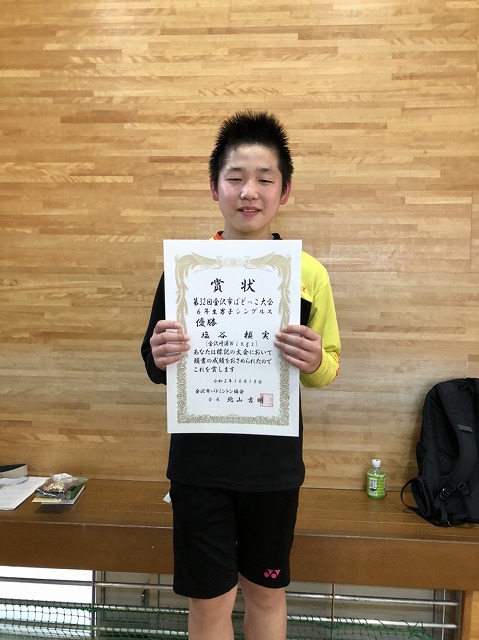 賞状
第32回金沢市ばどっこ大会
6年生男子シングルス
優勝
塩谷 頼実
(金沢川湯Wings)
あなたは標記の大会において
頭書の成績をおさめられたので
これを賞します
令和2年10月18日
金沢市バドミントン協会
会長 北山吉明
YONEX